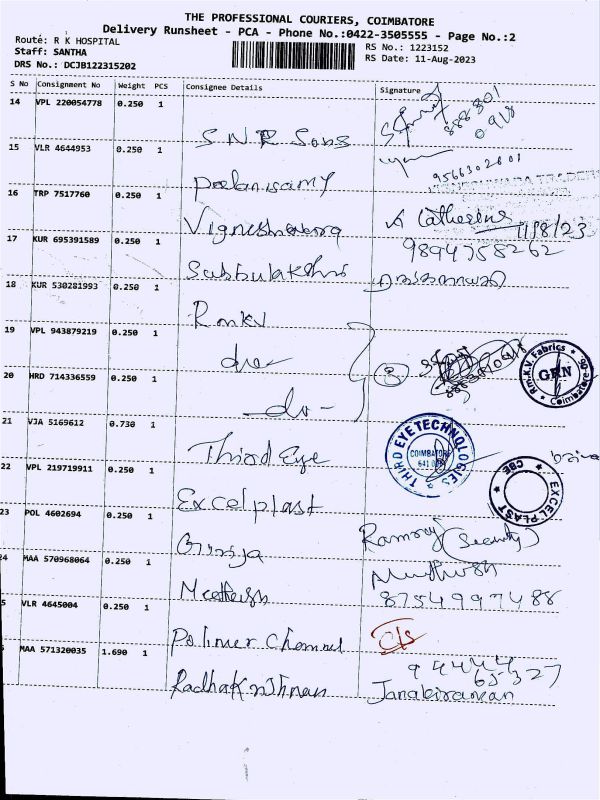 THE PROFESSIONAL COURIERS, COIMBATORE
Delivery Runsheet - PCA - Phone No.:0422-3505555 - Page No.:2
Route: R K HOSPITAL
RS No.: 1223152
Staff: SANTHA
RS Date: 11-Aug-2023
DRS No.: DCJB122315202
S No Consignment No Weight PCS Consignee Details Signature
14 VPL 220054778 0.250 1
S.N.R Sons
15 VLR 4644953 0.250 1
9566302601
Poolanisamy
16 TRP 7517760 0.250 1
A Catherine
11/8/23
17 KUR 695391589 0.250 1
9894758262
Subbulakshmi
18 KUR 530281993 0.250 1
Rmkv
19 VPL 943879219 0.250 1
do
3
Rm.K.V. Fabrics
GRN
Coimbatore
20 HRD 714336559 0.250 1
-do-
21 VJA 5169612 0.730 1
THIRD EYE TECHNOLOGIES
COIMBATORE
Third Eye
22 VPL 219719911 0.250 1
EXCEL PLAST
CBE
Excel plast
23 POL 4602694 0.250 1
Ramraj (Security)
Girija
24 MAA 570968064 0.250 1
Muthush
8754997488
25 VLR 4645004 0.250 1
Polimer Channel
26 MAA 571320035 1.690 1
94444
65327
Radhakrishnan
Janakiraman